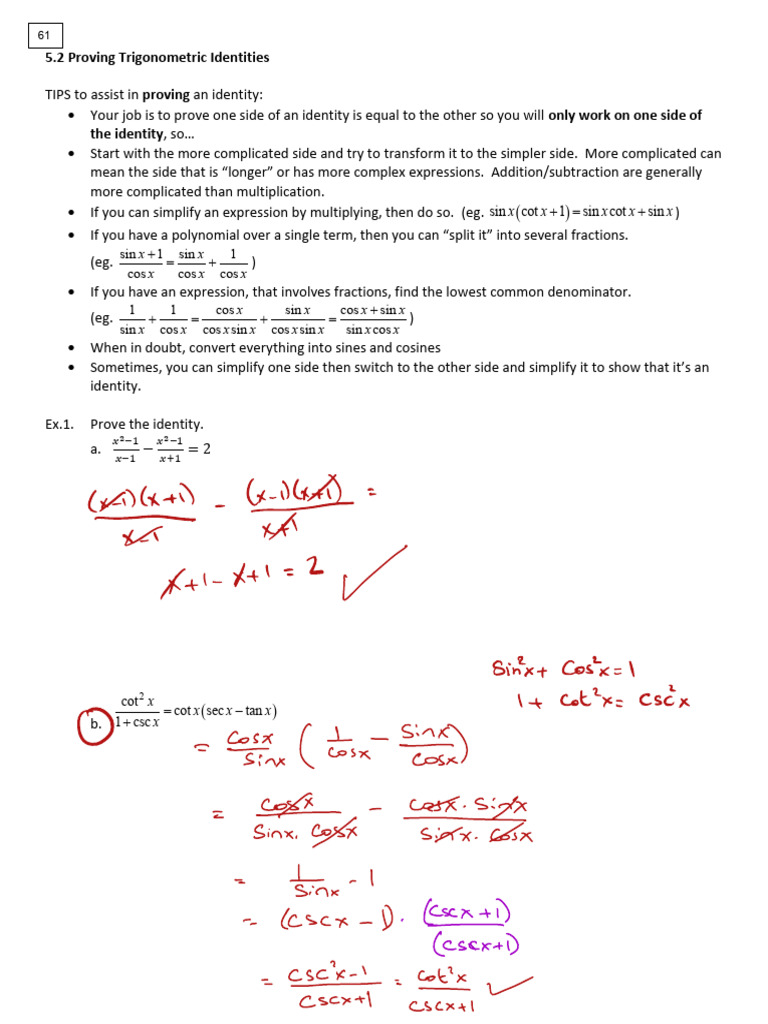 61
5.2 Proving Trigonometric Identities
TIPS to assist in proving an identity:
• Your job is to prove one side of an identity is equal to the other so you will only work on one side of
the identity, so…
• Start with the more complicated side and try to transform it to the simpler side. More complicated can
mean the side that is “longer” or has more complex expressions. Addition/subtraction are generally
more complicated than multiplication.
• If you can simplify an expression by multiplying, then do so. (eg. sin x(cot x + 1) = sin x cot x + sin x)
• If you have a polynomial over a single term, then you can “split it” into several fractions.
(eg. (sin x + 1)/(cos x) = (sin x)/(cos x) + 1/(cos x) )
• If you have an expression, that involves fractions, find the lowest common denominator.
(eg. 1/(sin x) + 1/(cos x) = (cos x)/(cos x sin x) + (sin x)/(cos x sin x) = (cos x + sin x)/(sin x cos x) )
• When in doubt, convert everything into sines and cosines
• Sometimes, you can simplify one side then switch to the other side and simplify it to show that it’s an
identity.
Ex.1. Prove the identity.
a. (x²−1)/(x−1) − (x²−1)/(x+1) = 2
((x-1)(x+1))/(x-1) - ((x-1)(x+1))/(x+1) =
x+1-x+1 = 2 ✓
Sin²x + Cos²x = 1
1 + Cot²x = Csc²x
b. (cot² x)/(1 + csc x) = cot x(sec x − tan x)
= (Cosx)/(Sinx) (1/(Cosx) - (Sinx)/(Cosx))
= (Cosx)/(Sinx. Cosx) - (Cosx. Sinx)/(Sinx. Cosx)
= 1/(Sinx) - 1
= (CSCX - 1). (CSCX+1)/(CSCX+1)
= (CSC²X-1)/(CSCX+1) = (Cot²x)/(CSCX+1) ✓